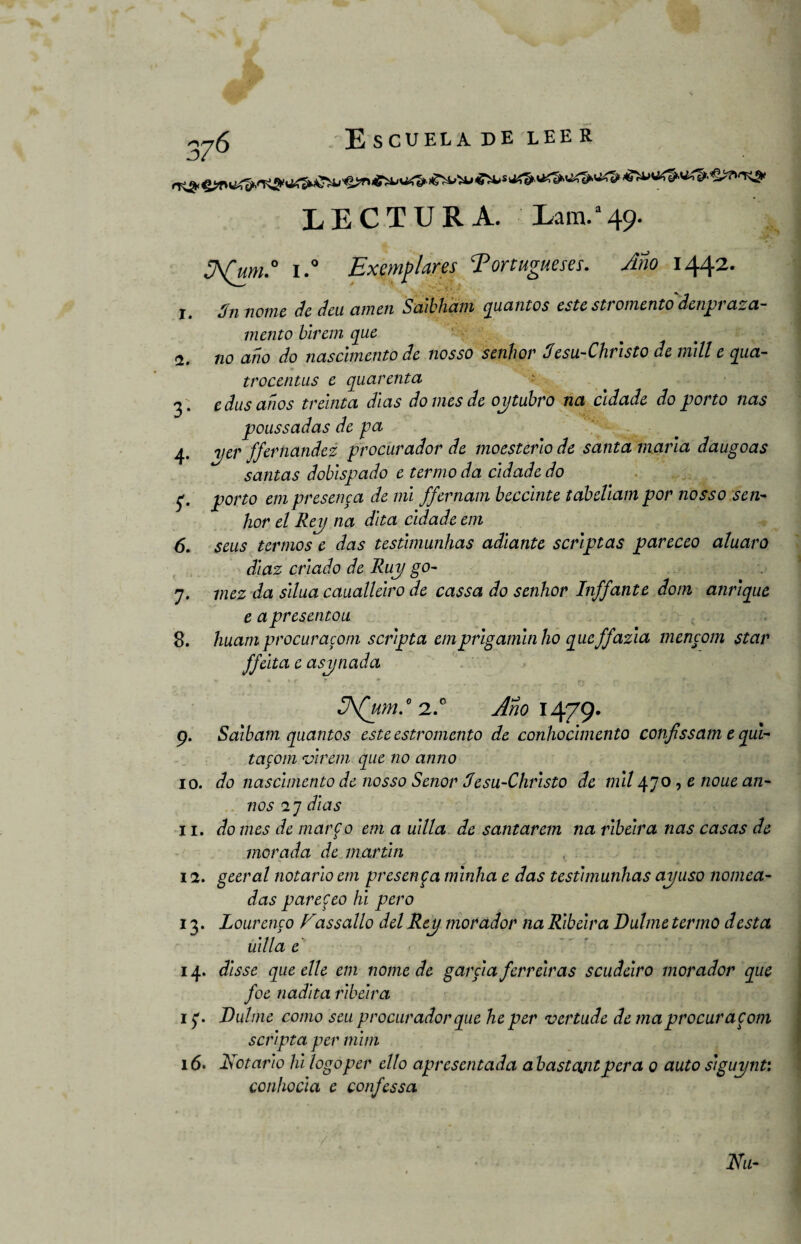 376 ESCUELA DE LEER
LECTURA. Lam.ª 49.
Num.º 1.º Exemplares Portugueses. Año 1442.
1. In nome de deu amen Saibham quantos este stromento denpraza-
mento birem que
2. no año do nascimento de nosso senhor Jesu-Christo de mill e qua-
trocentus e quarenta
3. e dus años treinta dias do mes de oytubro na cidade do porto nas
poussadas de pa
4. yer ffernandez procurador de moesterio de santa maria daugoas
santas dobispado e termo da cidade do
5. porto em presença de mi ffernam beccinte tabeliam por nosso sen-
hor el Rey na dita cidade em
6. seus termos e das testimunhas adiante scriptas pareceo aluaro
diaz criado de Ruy go-
7. mez da silua caualleiro de cassa do senhor Inffante dom anrique
e apresentou
8. huam procuraçom scripta em prigaminho que ffazia mençom star
ffeita e asynada
Num.º 2.º Año 1479.
9. Saibam quantos este estromento de conhocimento confissam e qui-
taçom virem que no anno
10. do nascimento de nosso Senor Jesu-Christo de mil 470, e noue an-
nos 27 dias
11. do mes de março em a uilla de santarem na ribeira nas casas de
morada de martin
12. geeral notario em presença minha e das testimunhas ayuso nomea-
das pareçeo hi pero
13. Lourenço Vassallo del Rey morador na Ribeira Dulme termo desta
uilla e
14. disse que elle em nome de garçia ferreiras scudeiro morador que
foe nadita ribeira
15. Dulme como seu procurador que he per vertude de ma procuraçom
scripta per mim
16. Notario hi logo per ello apresentada abastant pera o auto siguynt:
conhocia e confessa
Nu-